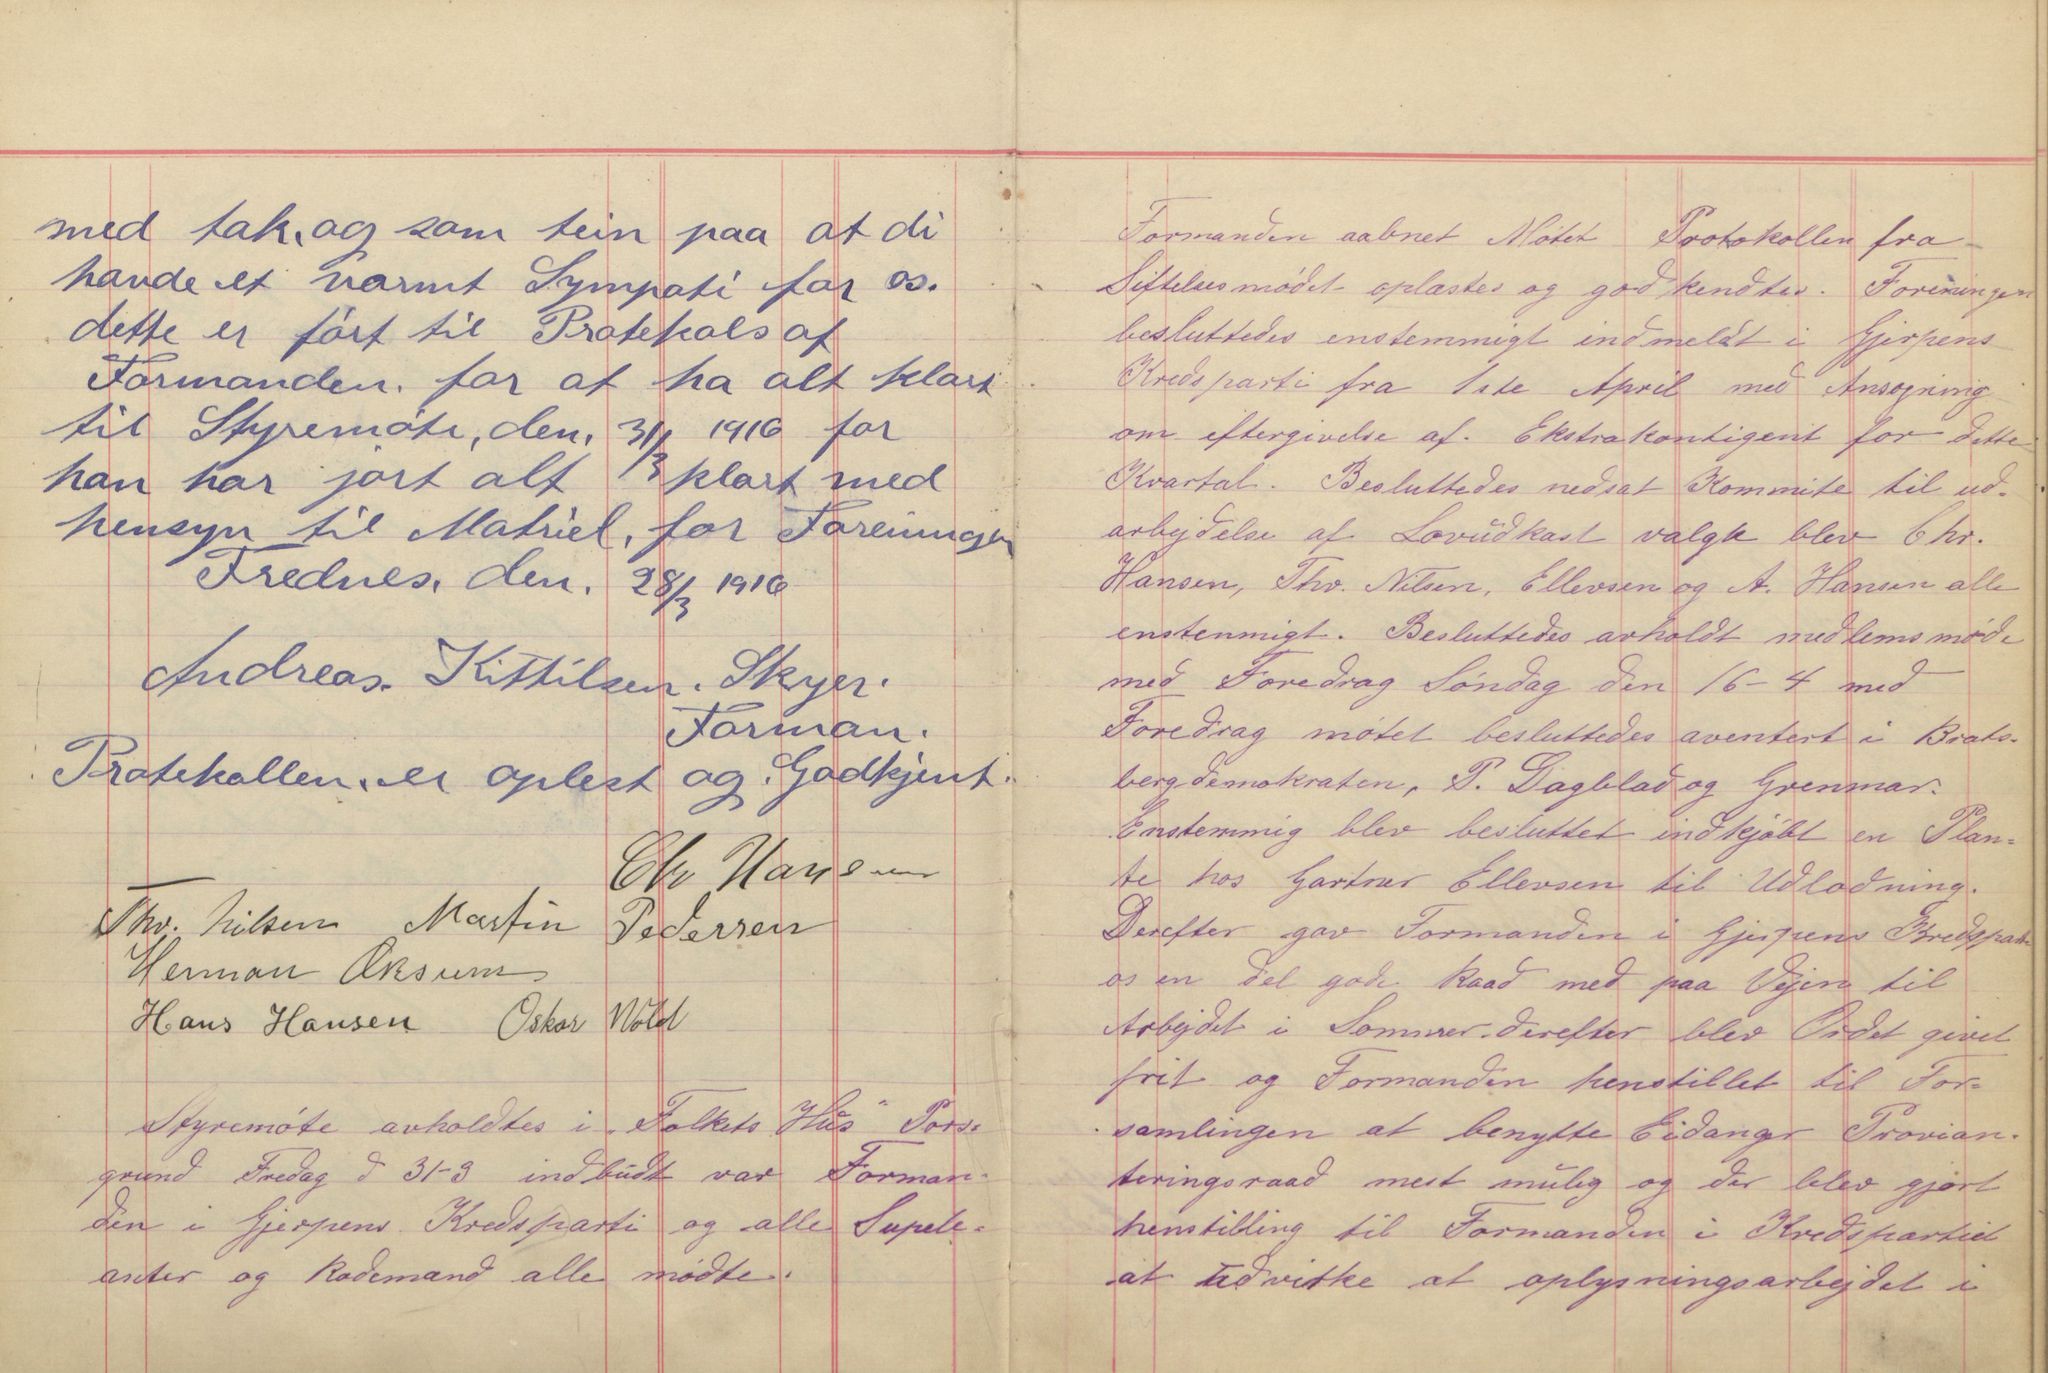 med tak, og som tein paa at di
havde et varmt Sympati for os.
dette er ført til Protekols af
Formanden. for at ha alt klart
til Styremøte, den, 31/3 1916 for
han har jort alt klart med
hensyn til Matriel, for Foreningen
Frednes. den. 28/3 1916
Andreas. Kittilsen. Skyer.
Forman.
Protekollen. er oplest og Godkjent.
Chr Hansen
Thv. Nilsen Martin Pedersen
Herman Oksum
Hans Hansen Oskar Wold
Styremøte avholdtes i „Folkets Hus" Pors-
grund Fredag d 31-3 indbudt var Forman-
den i Gjerpens Kredsparti og alle Supele-
anter og Rodemand alle mødte.
Formanden aabnet Møtet Protokollen fra
Siftelsesmødet oplæstes og godkendtes. Foreningen
besluttedes enstemmigt indmeldt i Gjerpens
Kredsparti fra 1ste April med Ansøgning
om eftergivelse af. Ekstrakontigent for dette
Kvartal. Besluttedes nedsat Kommite til ud-
arbejdelse af Lovudkast valgt blev Chr.
Hansen, Thv. Nilsen, Ellevsen og A. Hansen alle
enstenmigt. Besluttedes avholdt medlemsmøde
med Foredrag Søndag den 16-4 med
Foredrag møtet besluttedes aventert i Brats-
bergdemokraten, P. Dagblad og Grenmar.
Enstemmig blev besluttet indkjøbt en Plan-
te hos Gartner Ellevsen til Udlodning.
Derefter gav Formanden i Gjerpens Kredsparti
os en del gode Raad med paa Vejen til
Arbejdet i Sommer. derefter blev Ordet givet
frit og Formanden henstillet til For-
samlingen at benytte Eidanger Provian-
teringsraad mest mulig og der blev gjort
henstilling til Formanden i Kredspartiet
at udvirke at oplysningsarbejdet i